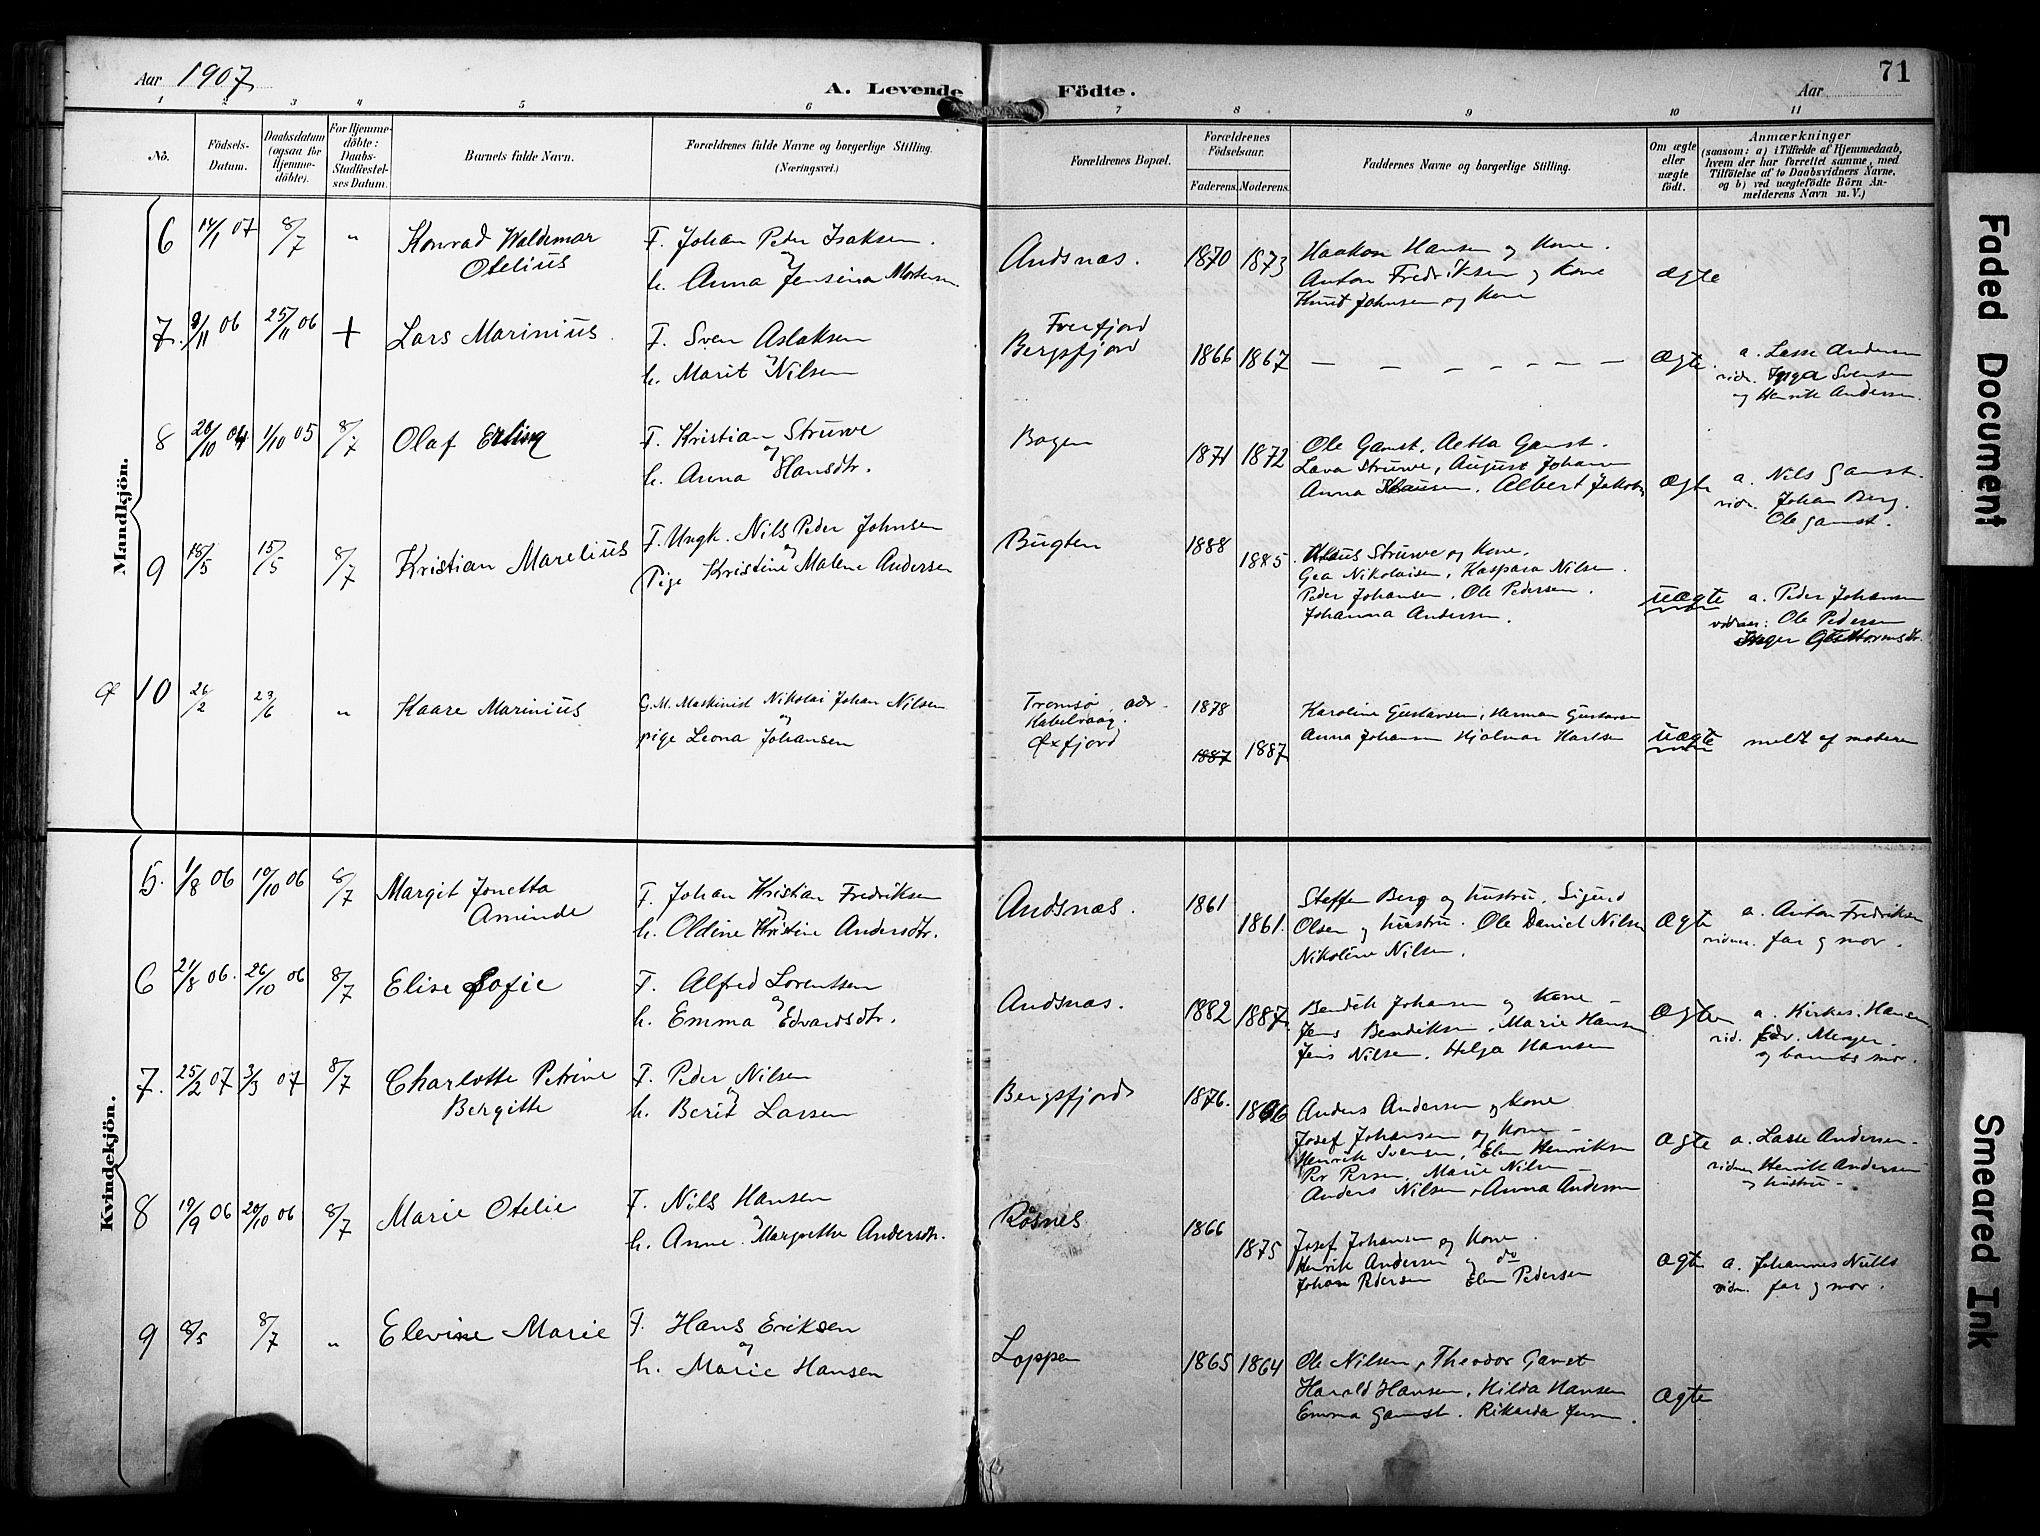 Aar 1907
A. Levende Födte.
Aar
71
1 2 3 4 5 6 7 8 9 10 11
No.
Födsels-
Datum.
Daabsdatum
(ogsaa for
Hjemme-
döbte).
For Hjemme-
döbte:
Daabs-
Stadfæstel-
ses Datum.
Barnets fulde Navn.
Forældrenes fulde Navne og borgerlige Stilling.
(Næringsvei.)
Forældrenes Bopæl.
Forældrenes
Födselsaar.
Faderens. Moderens.
Faddernes Navne og borgerlige Stilling.
Om ægte
eller
uægte
født.
Anmærkninger
(saasom: a) i Tilfælde af Hjemmedaab,
hvem der har forrettet samme, med
Tilföielse af to Daabsvidners Navne,
og b) ved uægtefödte Börn An-
melderens Navn m. V.)
Mandkjön.
6 14/1 07 8/7 " Konrad Waldemar
Otelius
F. Johan Peder Isaksen.
og
h. Anna Jensina Mortensen
Andsnæs. 1870 1873
Haakon Hansen og Kone.
Anton Fredriksen og Kone
Knut Johnsen og Kone
ægte
7. 9/11 06 25/11 06 + Lars Marinius
F. Sven Aslaksen
og
h. Marit Nilsen
Bergsfjord 1866 1867
— — — — — — —
ægte.
a. Lasse Andersen
vidn. Inga Svensen
og Henrik Andersen.
8 20/10 04 1/10 05 8/7 Olaf Erling
F. Kristian Struwe
og
h. Anna Hansdtr.
Bogen 1871 1872
Ole Gamst. Aetta Gamst.
Lava Struwe, August Johansen
Anna Klausen. Albert Jakobs
ægte
a. Nils Gamst.
vidn. Johan Berg.
Ole Gamst.
9 18/5 15/5 8/7 Kristian Marelius
F. Ungk. Nils Peder Johnsen
og
Pige Kristine Malene Andersen
Bugten 1888 1885
Klaus Struwe og Kone.
Gea Nikolaisen, Kaspara Nilsen.
Peder Johansen, Ole Pedersen.
Johanna Andersen.
uægte
a. Peder Johansen
vidner: Ole Pedersen
Inger Guttormsdtr.
10 26/2 23/6 " Kaare Marinius
G.M. Maskinist Nikolai Johan Nilsen
og
pige Leona Johansen
Tromsø, adr.
Kabelvaag.
Øxfjord
1878 1887 1887
Karoline Gustavsen, Herman Gustavsen
Anna Johansen Hjalmar Karlsen
uægte
meldt af moderen
Kvindekjön.
5. 1/8 06 19/10 06 8/7 Margit Jonetta
Aminde
F. Johan Kristian Fredriksen
og
h. Oldine Kristine Andersdtr.
Andsnæs. 1861 1861.
Steffen Berg og hustru. Sigurd
Olsen og hustru. Ole Daniel Nilsen
Nikoline Nilsen.
ægte
a. Anton Fredriksen
vidner. far og mor.
6 21/8 06. 26/10 06 8/7 Elise Sofie
F. Alfred Lorentsen
og
h. Emma Edvardsdtr.
Andsnæs. 1882 1887.
Bendik Johansen og Kone —
Jens Bendiksen. Marie Hansen
Jens Nilsen. Helga Hansen
ægte
a. Kirkes. Hansen
vid. Edv. Meyer.
og barnets mor.
7. 25/2 07 3/3 07 8/7 Charlotte Petrine
Bergitte
F. Peder Nilsen
og
h. Berit Larsen
Bergsfjord 1876. 1866
Anders Andersen og Kone
Josef Johansen og Kone —
Henrik Svensen, Elen Henriksen
Per Persen, Marie Nilsen —
Anders Nilsen, Anna Andersen
ægte
a. Lasse Andersen —
vidner Henrik Andersen
og hustru —
8 19/9 06 20/10 06 8/7 Marie Otelie
F. Nils Hansen
og
h. Anne Margrethe Andersdtr.
Råsnes 1866 1875
Josef Johansen og Kone.
Henrik Andersen og do
Johan Pedersen Elen Pedersen
ægte
a. Johannes Nutti
vidn. far og mor.
9 8/5 8/7 " Elevine Marie
F. Hans Eriksen
og
h. Marie Hansen
Loppen 1865 1864
Ole Nilsen, Theodor Gamst
Harald Hansen, Hilda Hansen
Emma Gamst. Rikarda Jensen.
ægte
Faded Document
Smeared Ink